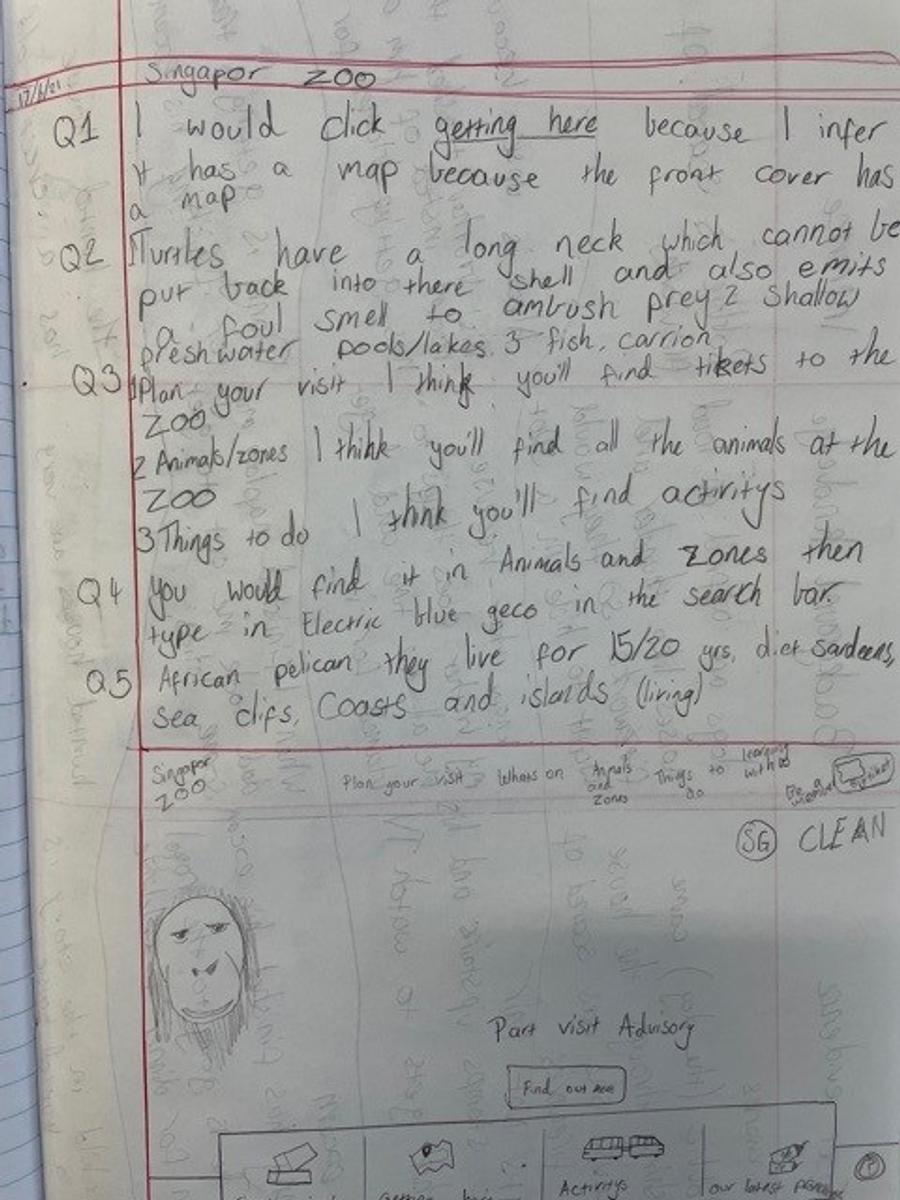 17/6/21
Singapor ZOO
Q1 I would click getting here because I infer
it has a map because the front cover has
a map
Q2 1Turtles have a long neck which cannot be
put back into there shell and also emits
a foul smell to ambush prey 2 Shallow
freshwater pools/lakes. 3 fish, carrion
Q3 1Plan your visit I think you'll find tikets to the
ZOO
2 Animals/zones I think you'll find all the animals at the
ZOO
3 Things to do I think you'll find activitys
Q4 you would find it in Animals and zones then
type in Electric blue geco in the search bar.
Q5 African pelican they live for 15/20 yrs, diet sardeens,
sea clifs, Coasts and islands (living)
Singapor
ZOO
Plan your visit
Whats on
Animals
and
Zones
Things to
do
learning
with us
Be a
member
SG CLEAN
Part visit Advisory
Find out
Activitys
our latest